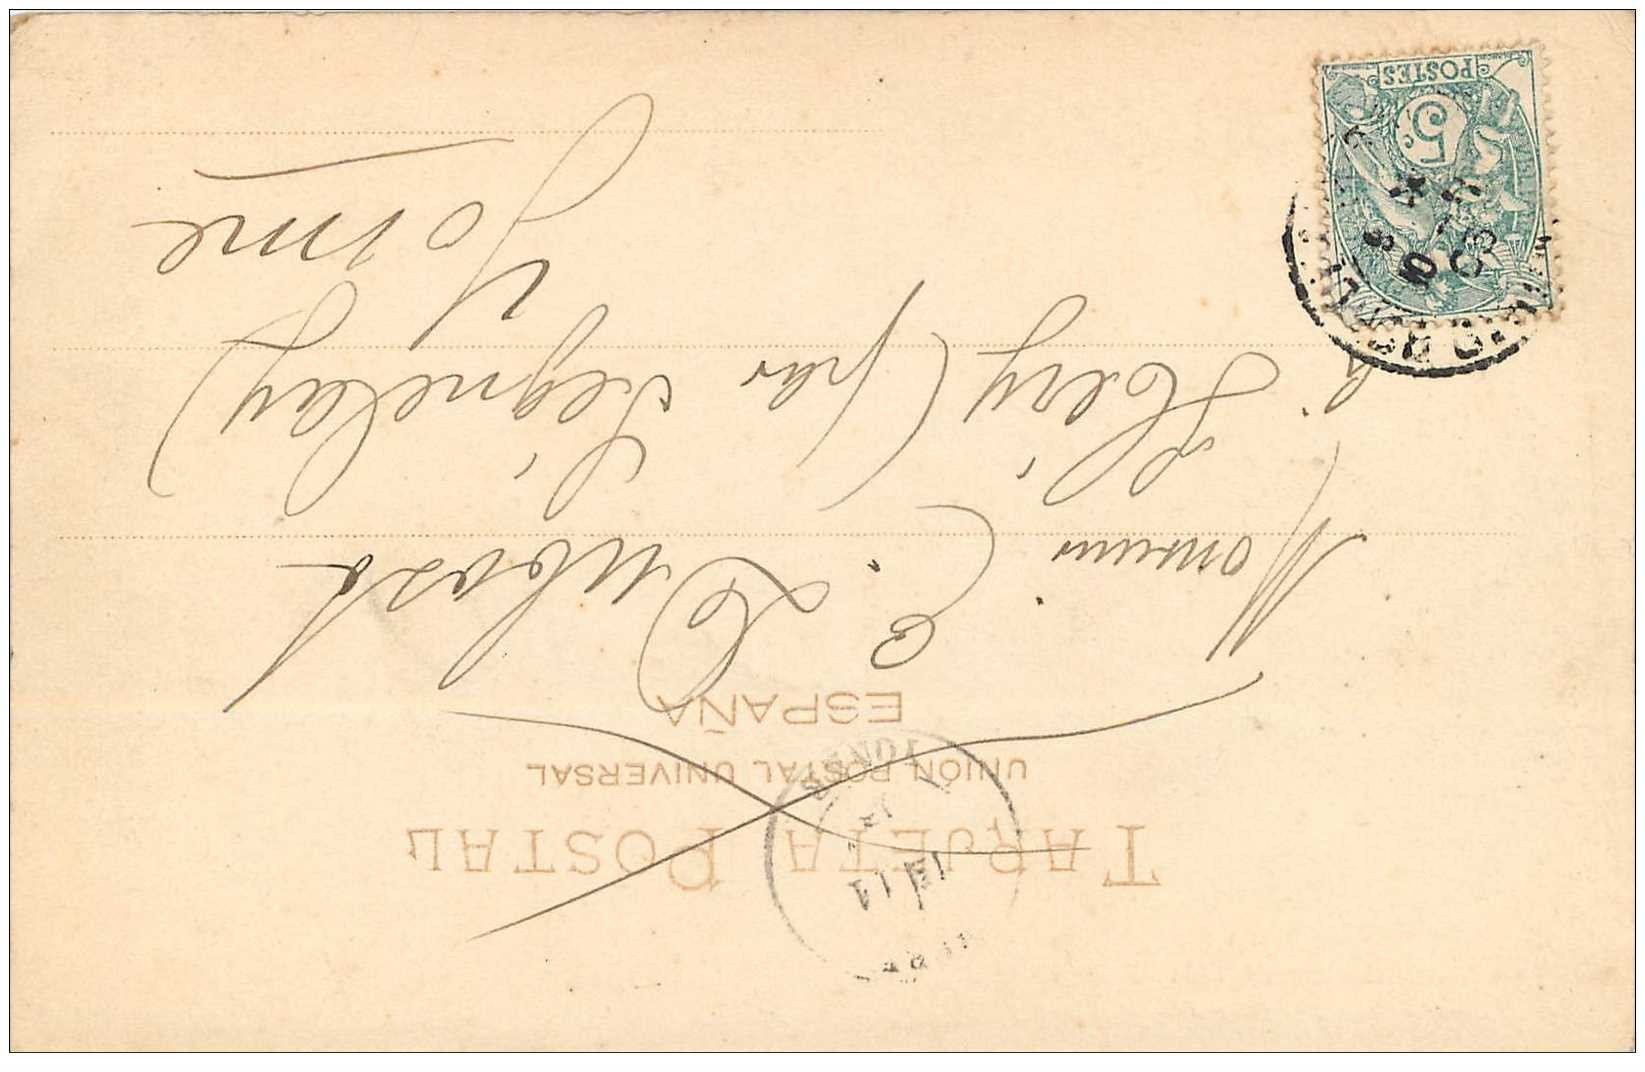 TARJETA POSTAL
UNIÓN POSTAL UNIVERSAL
ESPAÑA
Monsieur
E. Dubosc
à Héry (par Seignelay)
Yonne
POSTES
5
YONNE